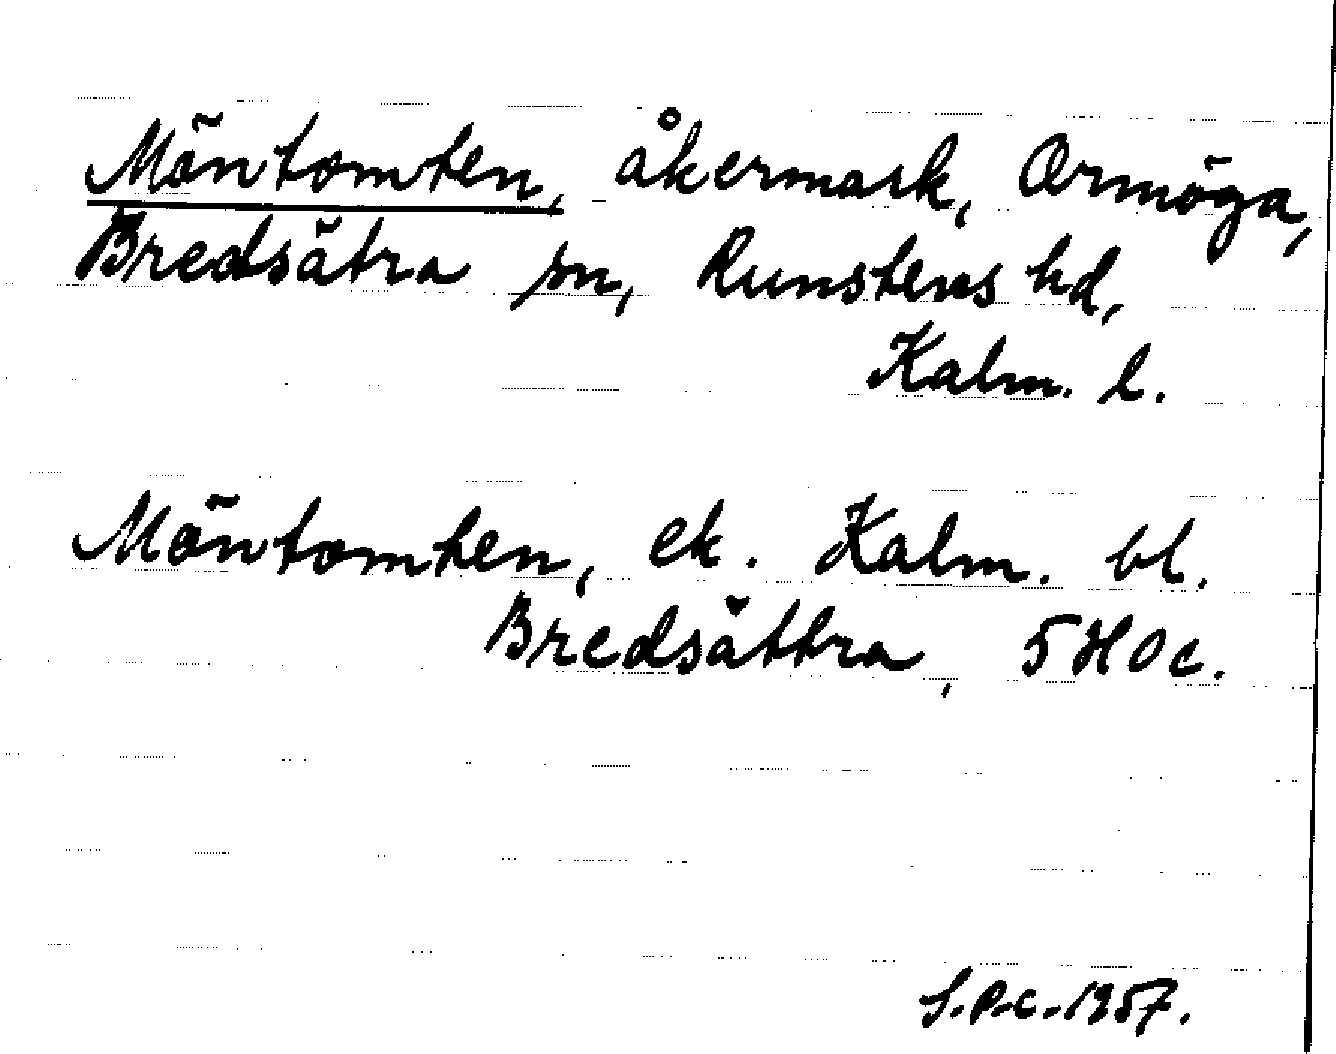 Möntomten, åkermark, Ormöga,
Bredsätra sn, Runstens hd,
Kalm. l.
Möntomten, ek. Kalm. bl.
Bredsättra, 5 H 0 c.
S.P.C. 1957.